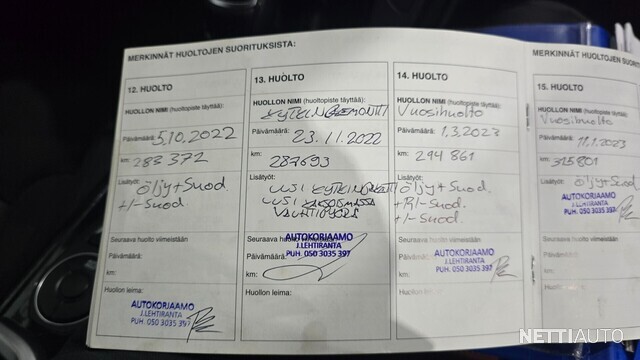 MERKINNÄT HUOLTOJEN SUORITUKSISTA:
12. HUOLTO
HUOLLON NIMI (huoltopiste täyttää):
Päivämäärä: 5.10.2022
km: 283 372
Lisätyöt: öljy+Suod.
+/-Suod.
Seuraava huolto viimeistään
Päivämäärä:
km:
Huollon leima:
AUTOKORJAAMO
J.LEHTIRANTA
PUH. 050 3035 397
13. HUOLTO
HUOLLON NIMI (huoltopiste täyttää):
KYTKINREMONTTI
Päivämäärä:
23.11.2022
km:
287693
Lisätyöt:
UUSI
UUSI KAKSOMASSA
VAUHTIPYÖRÄ
Seuraava huolto viimeistään
Päivämäärä:
km:
AUTOKORJAAMO
J.LEHTIRANTA
PUH. 050 3035 397
Huollon leima:
14. HUOLTO
HUOLLON NIMI (huoltopiste täyttää):
Vuosihuolto
Päivämäärä: 1.3.2023
km: 294 861
Lisätyöt:
öljy+Suod.
+Suod.
+/-Suod.
Seuraava huolto viimeistään
Päivämäärä:
km:
AUTOKORJAAMO
J.LEHTIRANTA
PUH. 050 3035 397
Huollon leima:
MERKINNÄT HUOLTOJEN
15. HUOLTO
HUOLLON NIMI (huoltopiste täyttää):
Vuosihuolto
Päivämäärä:
km: 315801
Lisätyöt:
öljy+Suod.
AUTOKORJAAMO
J.LEHTIRANTA
PUH. 050 3035 397
Seuraava huolto viimeistään
Päivämäärä:
km:
Huollon leima:
NETTIAUTO